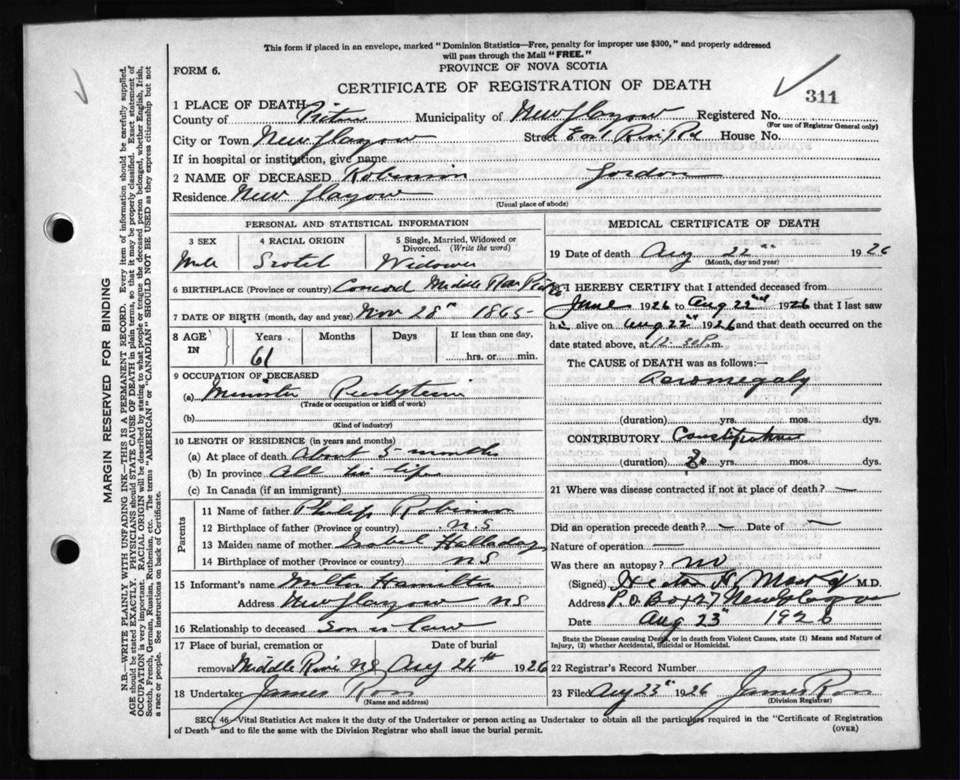 This form if placed in an envelope, marked "Dominion Statistics—Free, penalty for improper use $300," and properly addressed
will pass through the Mail "FREE."
FORM 6.
PROVINCE OF NOVA SCOTIA
CERTIFICATE OF REGISTRATION OF DEATH
311
1 PLACE OF DEATH
County of Pictou Municipality of New Glasgow Registered No.
(For use of Registrar General only)
City or Town New Glasgow Street East Riv. Rd House No.
If in hospital or institution, give name
2 NAME OF DECEASED Robinson Gordon
Residence New Glasgow
(Usual place of abode)
MARGIN RESERVED FOR BINDING
N.B.—WRITE PLAINLY WITH UNFADING INK—THIS IS A PERMANENT RECORD. Every item of information should be carefully supplied.
AGE should be stated EXACTLY. PHYSICIANS should STATE CAUSE OF DEATH in plain terms, so that it may be properly classified. Exact statement of
OCCUPATION is very important. RACIAL ORIGIN will be described by stating to what people or tongue the deceased person belonged, whether English, Irish,
Scotch, French, German, Russian, Ruthenian, etc. The terms "AMERICAN" or "CANADIAN" SHOULD NOT BE USED as they express citizenship but not
a race or people. See instructions on back of Certificate.
PERSONAL AND STATISTICAL INFORMATION
3 SEX
Male
4 RACIAL ORIGIN
Scotch
5 Single, Married, Widowed or
Divorced. (Write the word)
Widower
6 BIRTHPLACE (Province or country) Concord Middle River Pictou
7 DATE OF BIRTH (month, day and year) Nov 28th 1865
8 AGE IN
Years
61
Months
Days
If less than one day,
hrs. or min.
9 OCCUPATION OF DECEASED
(a) Minister Presbyterian
(Trade or occupation or kind of work)
(b)
(Kind of industry)
10 LENGTH OF RESIDENCE (in years and months)
(a) At place of death About 5 months
(b) In province All his life
(c) In Canada (if an immigrant)
Parents
11 Name of father Philip Robinson
12 Birthplace of father (Province or country) N.S
13 Maiden name of mother Isobel Halladay
14 Birthplace of mother (Province or country) NS
15 Informant's name Walter Hamilton
Address New Glasgow NS
16 Relationship to deceased Son in law
17 Place of burial, cremation or
removal Middle River NS
Date of burial
Aug 24th 1926
18 Undertaker James Ross
(Name and address)
MEDICAL CERTIFICATE OF DEATH
19 Date of death Aug 22nd 1926
(Month, day and year)
I HEREBY CERTIFY that I attended deceased from
June 1926 to Aug 22nd 1926 that I last saw
h alive on Aug 22nd 1926 and that death occurred on the
date stated above, at 12 30 P. m.
The CAUSE of DEATH was as follows:
Acromegaly
(duration) yrs. mos. dys.
CONTRIBUTORY Constipation
(duration) yrs. mos. dys.
21 Where was disease contracted if not at place of death? —
Did an operation precede death? – Date of –
Nature of operation —
Was there an autopsy? no
(Signed) M.D.
Address P.O. Box 127 New Glasgow
Date Aug 23rd 1926
State the Disease causing Death, or in death from Violent Causes, state (1) Means and Nature of
Injury, (2) whether Accidental, Suicidal or Homicidal.
22 Registrar's Record Number
23 Filed Aug 23rd 1926 James Ross
(Division Registrar)
SEC. 46—Vital Statistics Act makes it the duty of the Undertaker or person acting as Undertaker to obtain all the particulars required in the "Certificate of Registration
of Death" and to file the same with the Division Registrar who shall issue the burial permit.
(OVER)